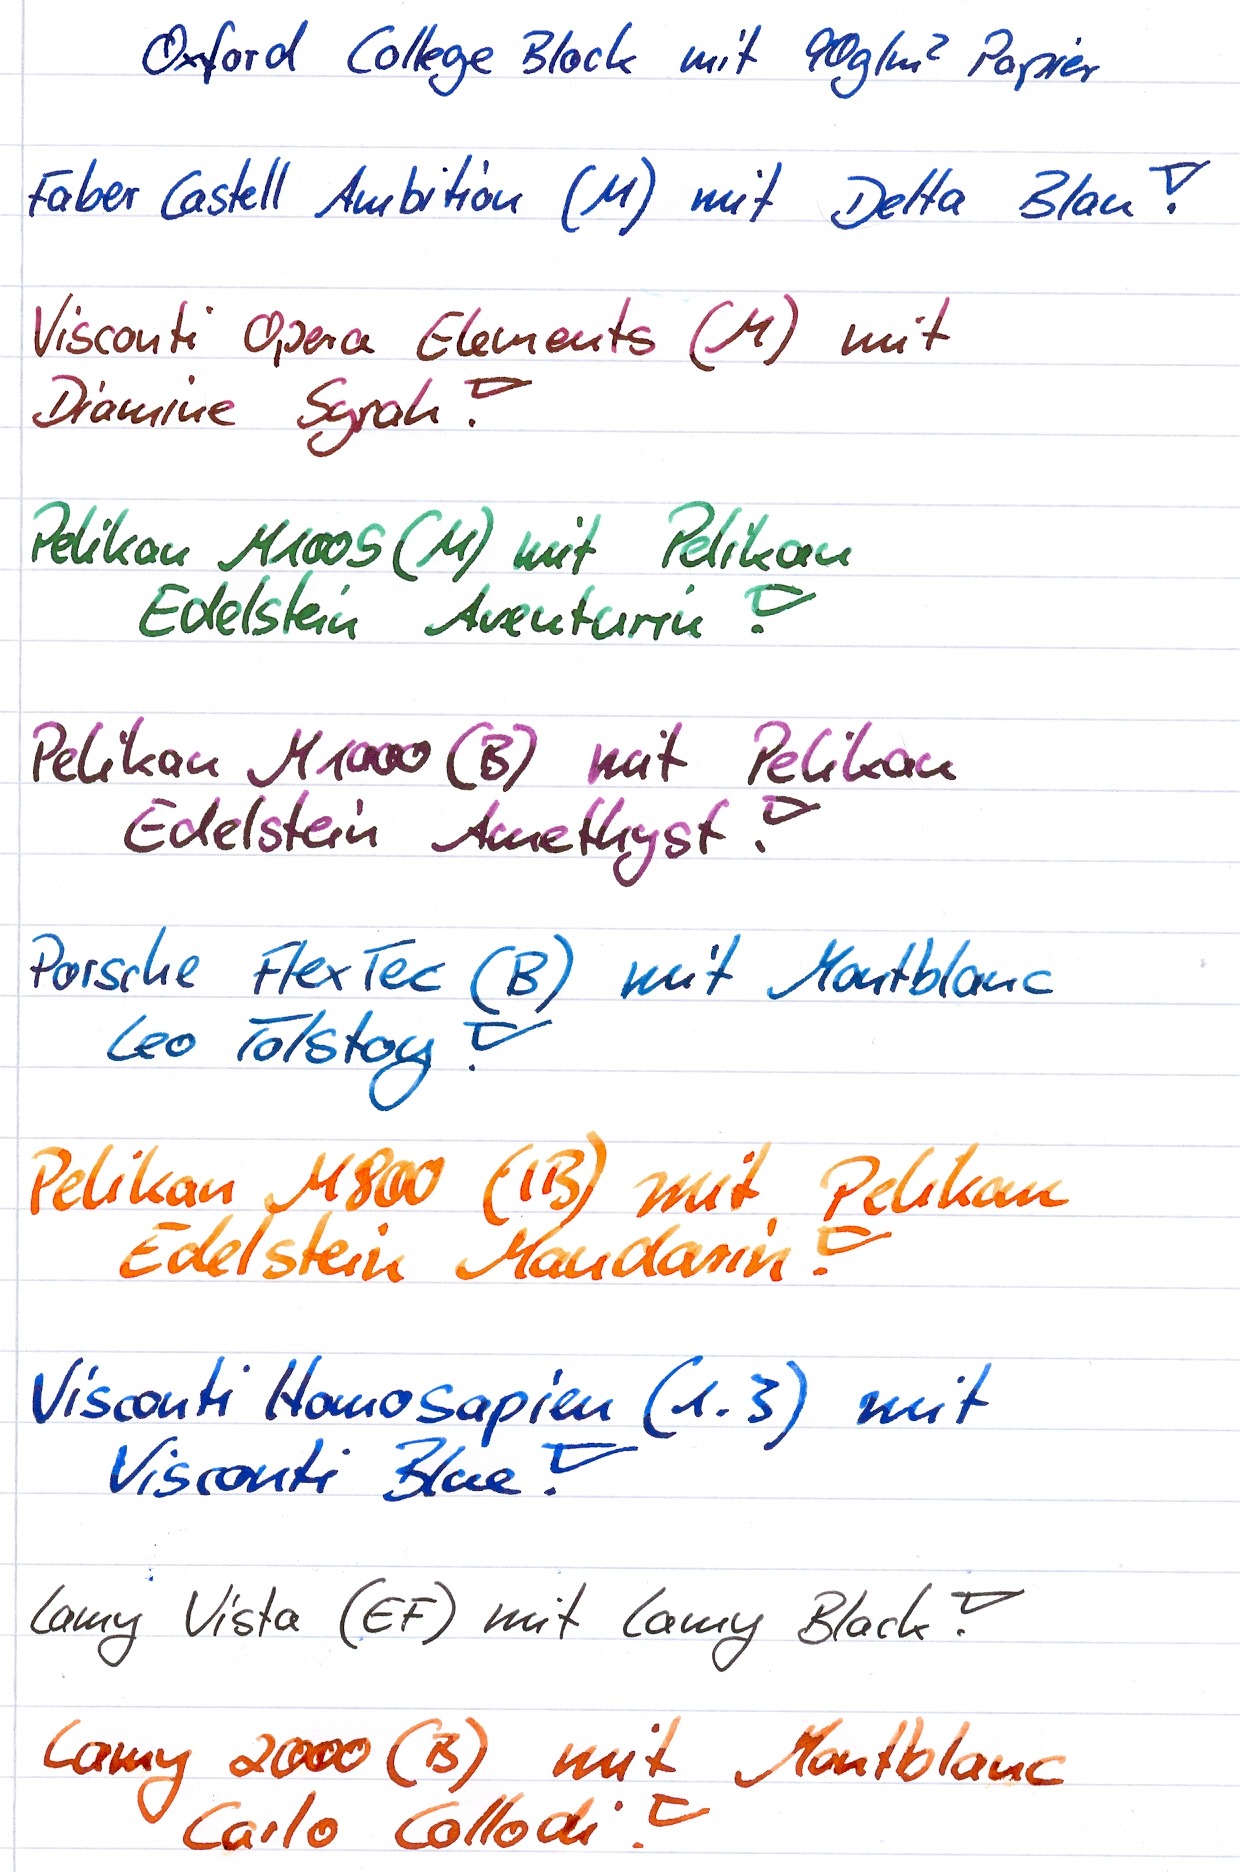 Oxford College Block mit 90g/m² Papier
Faber Castell Ambition (M) mit Delta Blau!
Visconti Opera Elements (M) mit
Diamine Syrah!
Pelikan M1005 (M) mit Pelikan
Edelstein Aventurin!
Pelikan M1000 (B) mit Pelikan
Edelstein Amethyst!
Porsche FlexTec (B) mit Montblanc
Leo Tolstoy!
Pelikan M800 (IB) mit Pelikan
Edelstein Mandarin!
Visconti Homosapien (1.3) mit
Visconti Blue!
Lamy Vista (EF) mit Lamy Black!
Lamy 2000 (B) mit Montblanc
Carlo Collodi!